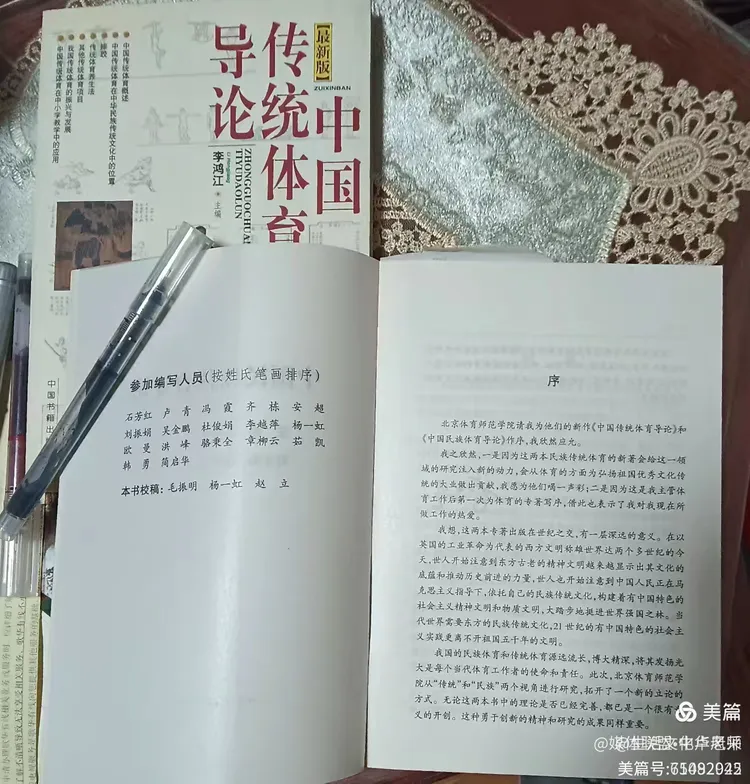 【最新版】
ZUIXINBAN
中国
传统体育
导论
ZHONGGUOCHUAN
TIYUDAOLUN
李鸿江 主编
中国传统体育概述
中国传统体育在中华民族传统文化中的位置
传统体育养生法
其他传统体育项目
我国传统体育的振兴与发展
中国传统体育在中小学教学中的应用
中国书籍出
参加编写人员(按姓氏笔画排序)
石芳红 卢 青 冯 霞 齐 栋 安 超
刘振娟 吴金鹏 杜俊娟 李越萍 杨一虹
欧 曼 洪 峰 骆秉全 章柳云 茹 凯
韩 勇 简启华
本书校稿:毛振明 杨一虹 赵 立
序
北京体育师范学院请我为他们的新作《中国传统体育导论》和
《中国民族体育导论》作序,我欣然应允。
我之欣然,一是因为这两本民族传统体育的新著会给这一领
域的研究注入新的动力,会从体育的方面为弘扬祖国优秀文化传
统的大业做出贡献,我愿为他们喝一声彩;二是因为这是我主管体
育工作后第一次为体育的专著写序,借此也表示了我对我现在所
做工作的热爱。
我想,这两本专著出版在世纪之交,有一层深远的意义。在以
英国的工业革命为代表的西方文明称雄世界达两个多世纪的今
天,世人开始注意到东方古老的精神文明越来越显示出其文化的
底蕴和推动历史前进的力量,世人也开始注意到中国人民正在马
克思主义指导下,依托自己的民族传统文化,构建着有中国特色的
社会主义精神文明和物质文明,大踏步地挺进世界强国之林。当
代世界需要东方的民族传统文化,21世纪的有中国特色的社会主
义实践更离不开祖国五千年的文明。
我国的民族体育和传统体育源远流长,博大精深,将其发扬光
大是每个当代体育工作者的使命和责任。此次,北京体育师范学
院从“传统”和“民族”两个视角进行研究,拓开了一个新的立论的
方式。无论这两本书中的理论是否已经完善,都已是一个很有
义的开创。这种勇于创新的精神和研究的成果同样重要。
美篇
美篇号: